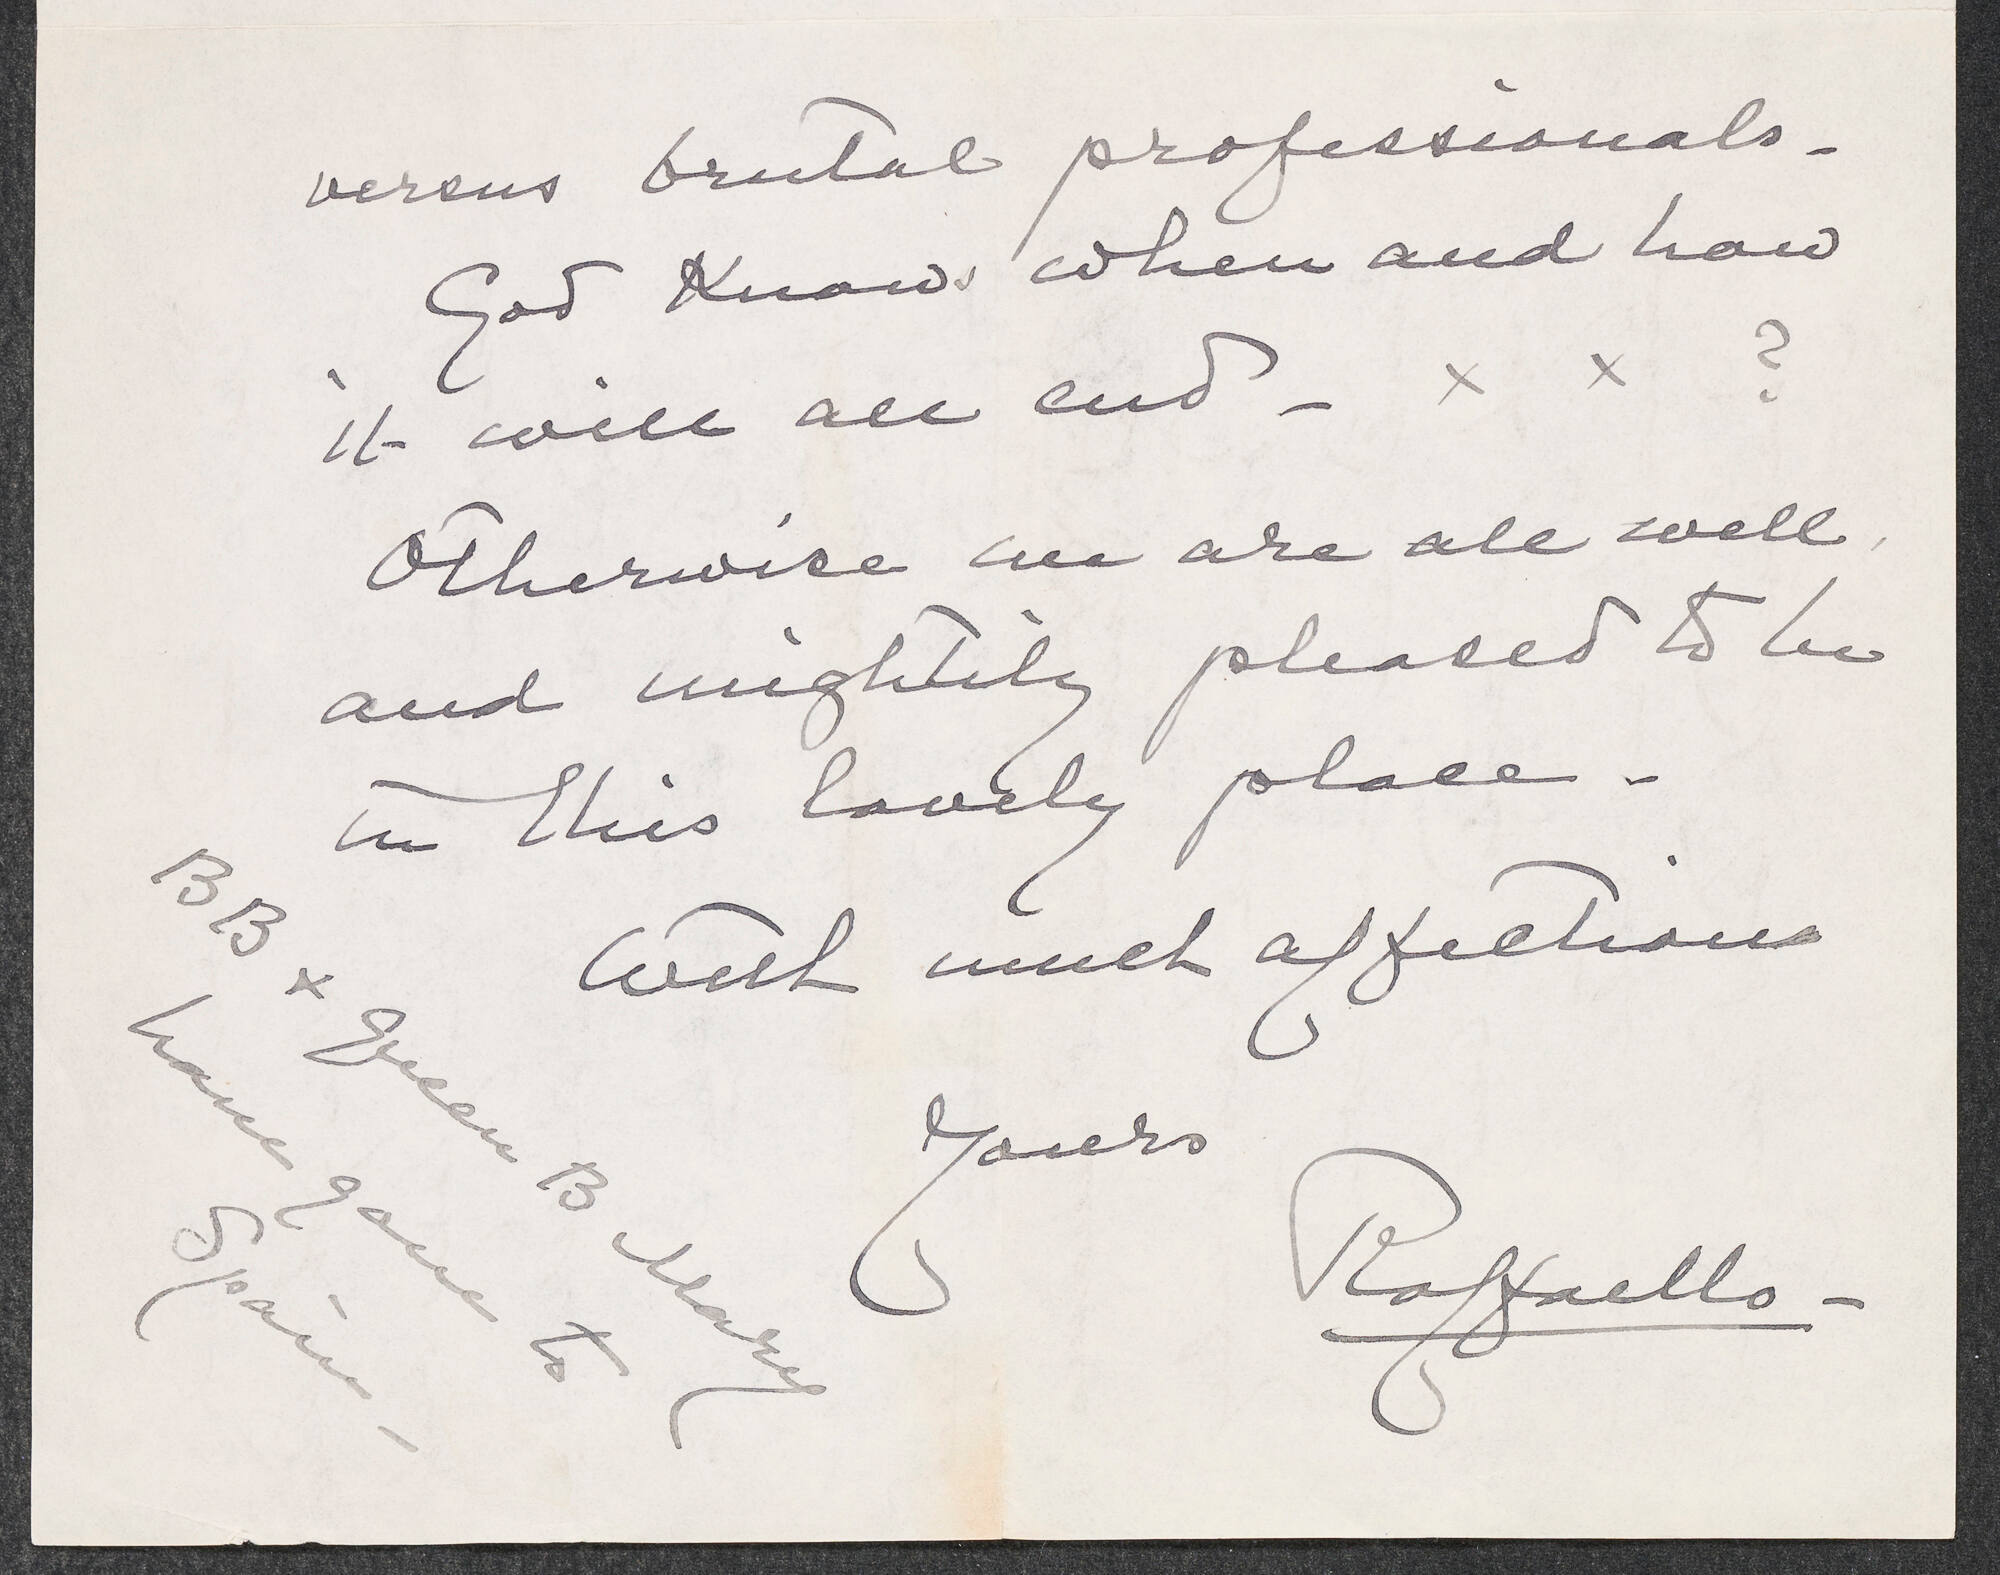 versus brutal professionals -
God Knows when and how
it will all end - x x ?
Otherwise we are all well,
and mightily pleased to be
in this lovely place -
With much affections
Yours
Raffaello -
BB + Green B Mary
have gone to
Spain -